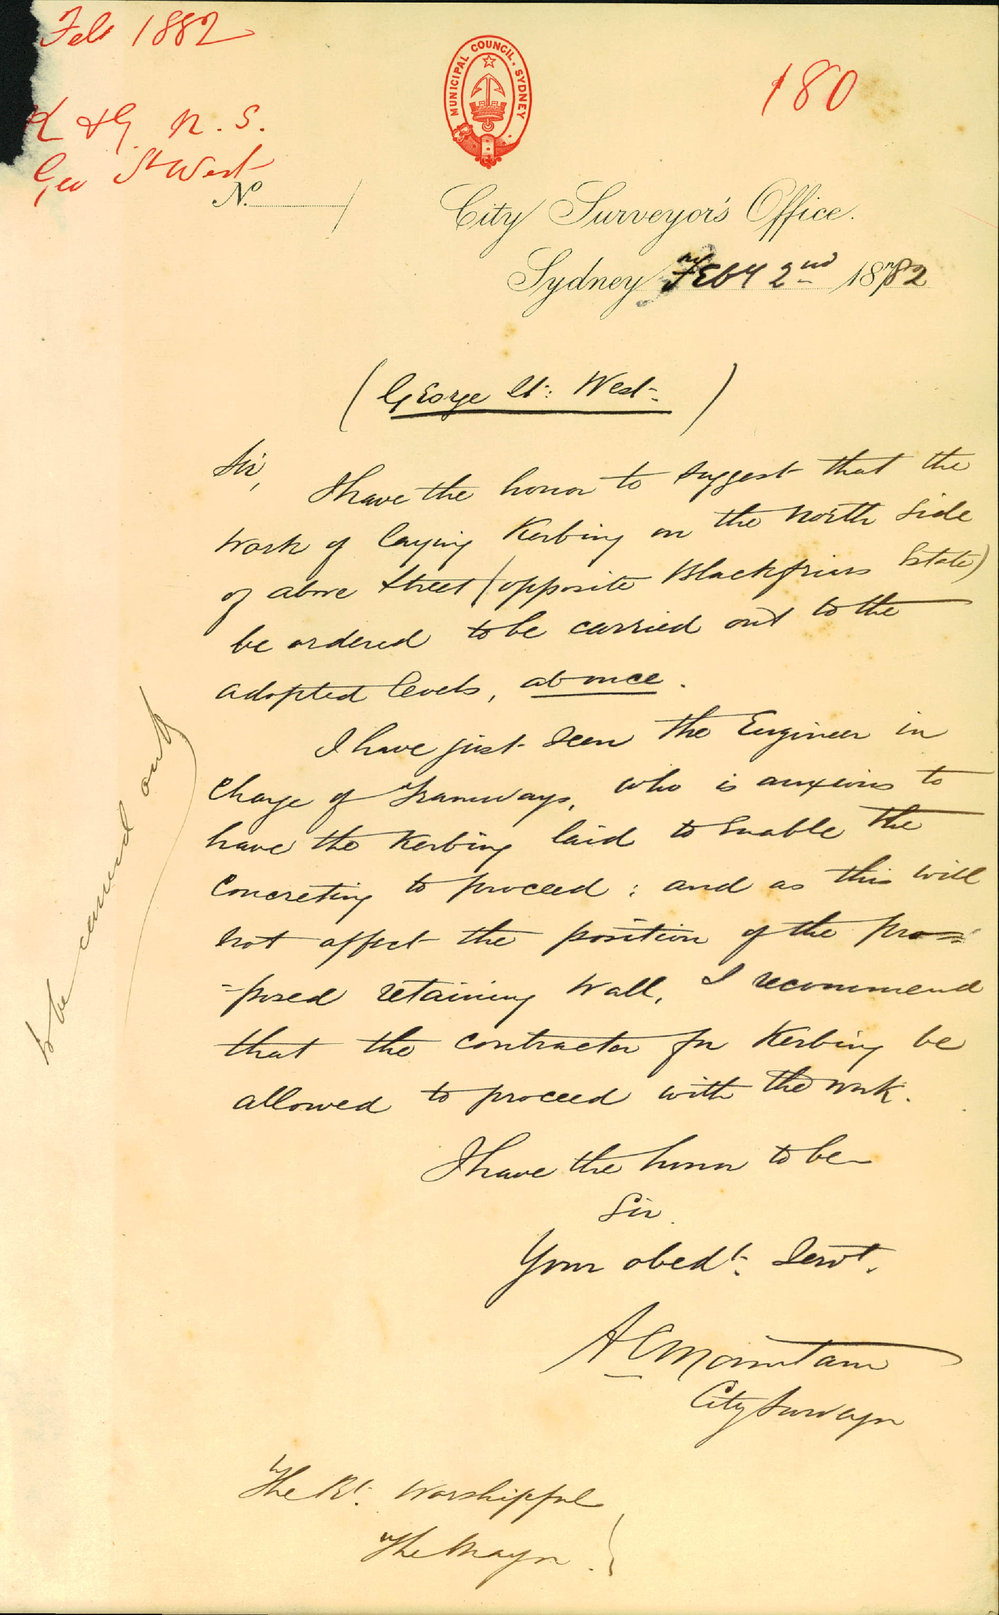 Feb 1882
180
K & G. N. S.
Geo St West
MUNICIPAL COUNCIL. SYDNEY
No. /
City Surveyor's Office.
Sydney Feby 2nd 1882
(George St: West.)
Sir,
I have the honor to suggest that the
work of laying Kerbing on the North Side
of above Street (opposite Blackfriars Estate)
be ordered to be carried out to the
adopted levels, at once.
I have just seen the Engineer in
Charge of Tramways, who is anxious to
have the Kerbing laid to enable the
Concreting to proceed: and as this will
not affect the position of the pro=
=posed retaining Wall, I recommend
that the contractor for Kerbing be
allowed to proceed with the work.
I have the honor to be
Sir
Your obedt. Servt.
A C Mountain
City Surveyor
The Rt. Worshipful
The Mayor.
to be carried out